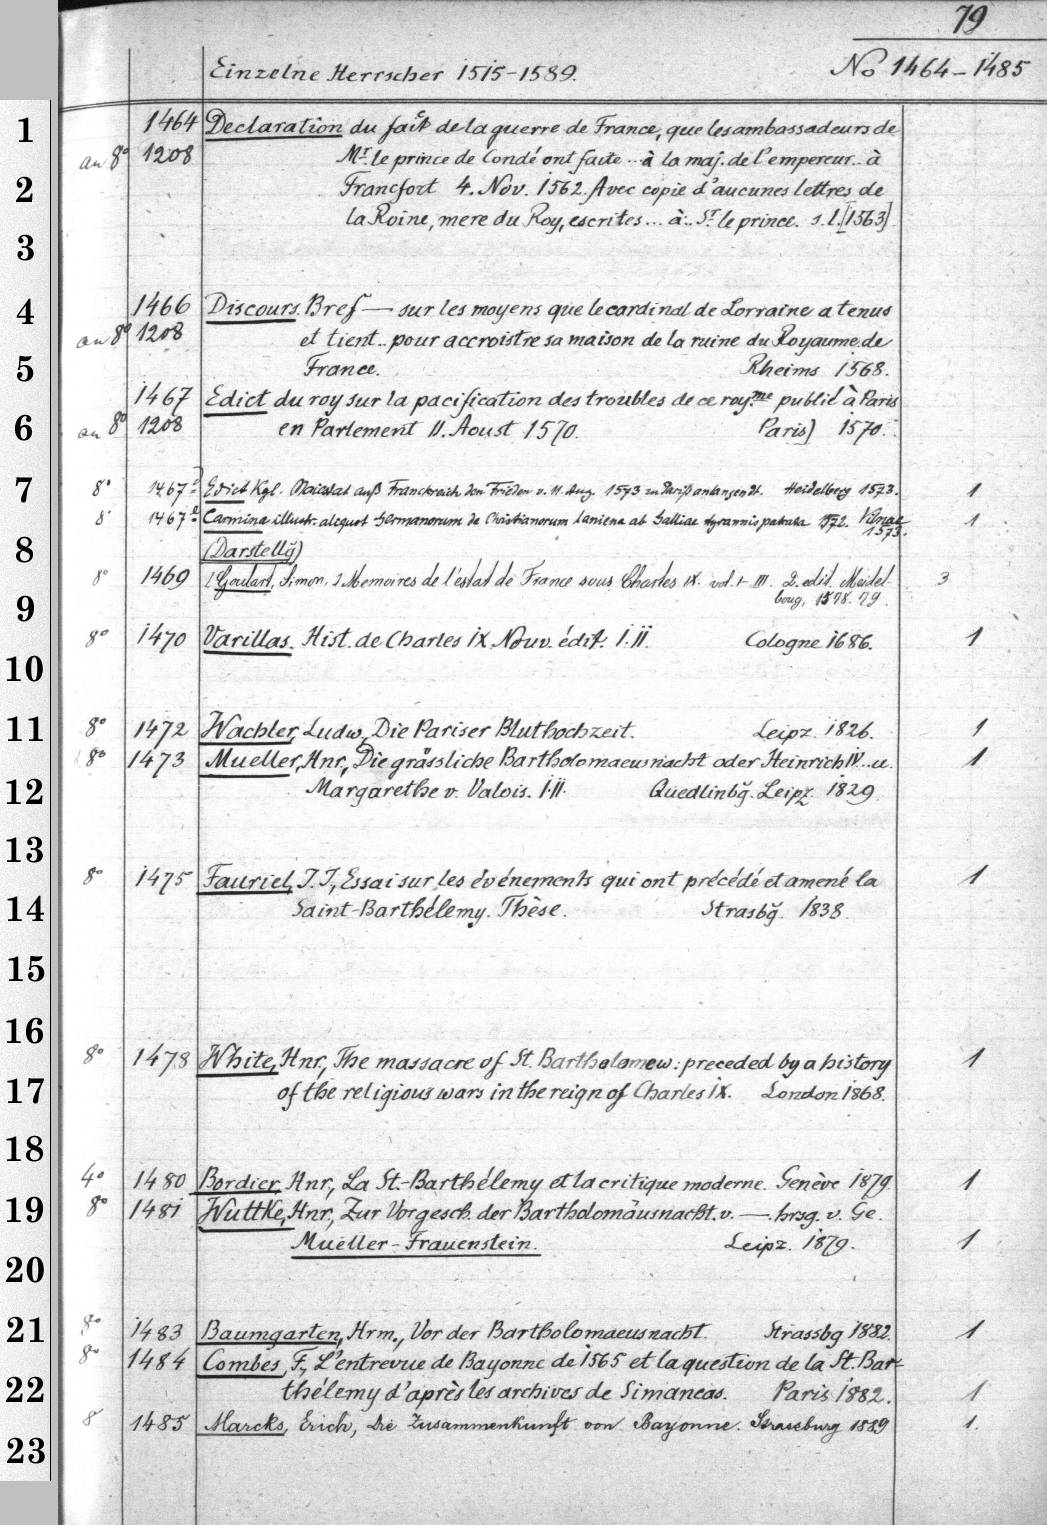 79
Einzelne Herrscher 1515-1589. No 1464-1485
1
1464 Declaration du fait de la guerre de France, que les ambassadeurs de
an 8° 1208 Mr. le prince de Condé ont faite .. à la maj. de l'empereur .. à
2 Francfort 4. Nov. 1562. Avec copie d'aucunes lettres de
la Roine, mere du Roy, escrites ... à .. Sr le prince. s. l. [1563]
3
4 1466 Discours. Bref — sur les moyens que le cardinal de Lorraine a tenus
an 8° 1208 et tient .. pour accroistre sa maison de la ruine du Royaume de
5 France. Rheims 1568.
1467 Edict du roy sur la pacification des troubles de ce roy.me publié à Paris
6 an 8° 1208 en Parlement 11. Aoust 1570. Paris] 1570.
7 8° 1467 Edict Kgl. Maiestat auß Franckreich den Frieden v. 11. Aug. 1573 zu Pariß anlangendt. Heidelberg 1573. 1
8° 1467 Carmina illustr. aliquot Germanorum de Christianorum laniena ab Galliae tyrannis patrata 1572. Vilnae 1573. 1
8 (Darstellg̃)
8° 1469 [Goulart, Simon,] Memoires de l'estat de France sous Charles IX. vol. I-III. 2. edit. Meidel- 3
9 bourg, 1578. 79.
8° 1470 Varillas. Hist. de Charles IX. Nouv. édit. I.II. Cologne 1686. 1
10
11 8° 1472 Wachler, Ludw., Die Pariser Bluthochzeit. Leipz. 1826. 1
8° 1473 Mueller, Hnr., Die grässliche Bartholomaeusnacht oder Heinrich IV. .. u. 1
12 Margarethe v. Valois. I.II. Quedlinbg̃. Leipz. 1829
13
8° 1475 Fauriel, J. J., Essai sur les événements qui ont précédé et amené la 1
14 Saint-Barthélemy. Thèse. Strasbg̃. 1838.
15
16
8° 1478 White, Hnr., The massacre of St. Bartholomew: preceded by a history 1
17 of the religious wars in the reign of Charles IX. London 1868.
18
4° 1480 Bordier, Hnr., La St.-Barthélemy et la critique moderne. Genève 1879 1
19 8° 1481 Wuttke, Hnr., Zur Vorgesch. der Bartholomäusnacht. v. —. hrsg. v. Ge.
Mueller-Frauenstein. Leipz. 1879. 1
20
21 8° 1483 Baumgarten, Hrm., Vor der Bartholomaeusnacht. Strassbg 1882. 1
8° 1484 Combes, F., L'entrevue de Bayonne de 1565 et la question de la St. Bar-
22 thélemy d'après les archives de Simancas. Paris 1882. 1
8° 1485 Marcks, Erich, Die Zusammenkunft von Bayonne. Strassburg 1889 1.
23